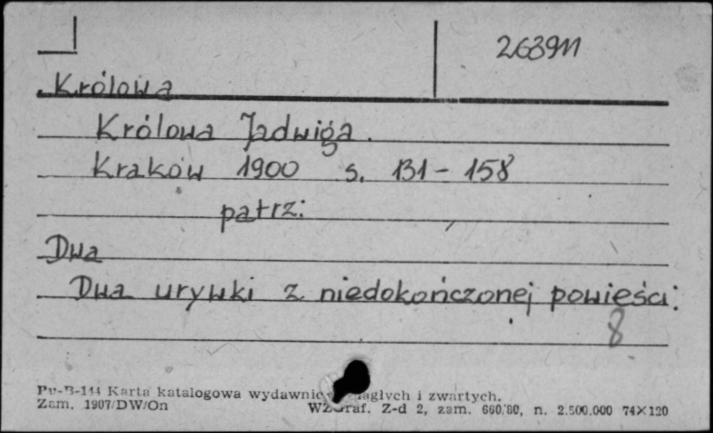 263911
Królowa
Królowa Jadwiga.
Kraków 1900 s. 131-158
patrz:
Dwa
Dwa urywki z niedokończonej powieści:
8
Pu-B-144 Karta katalogowa wydawnictw ciągłych i zwartych.
Zam. 1907/DW/On WZGraf. Z-d 2, zam. 660/80, n. 2.500.000 74×120